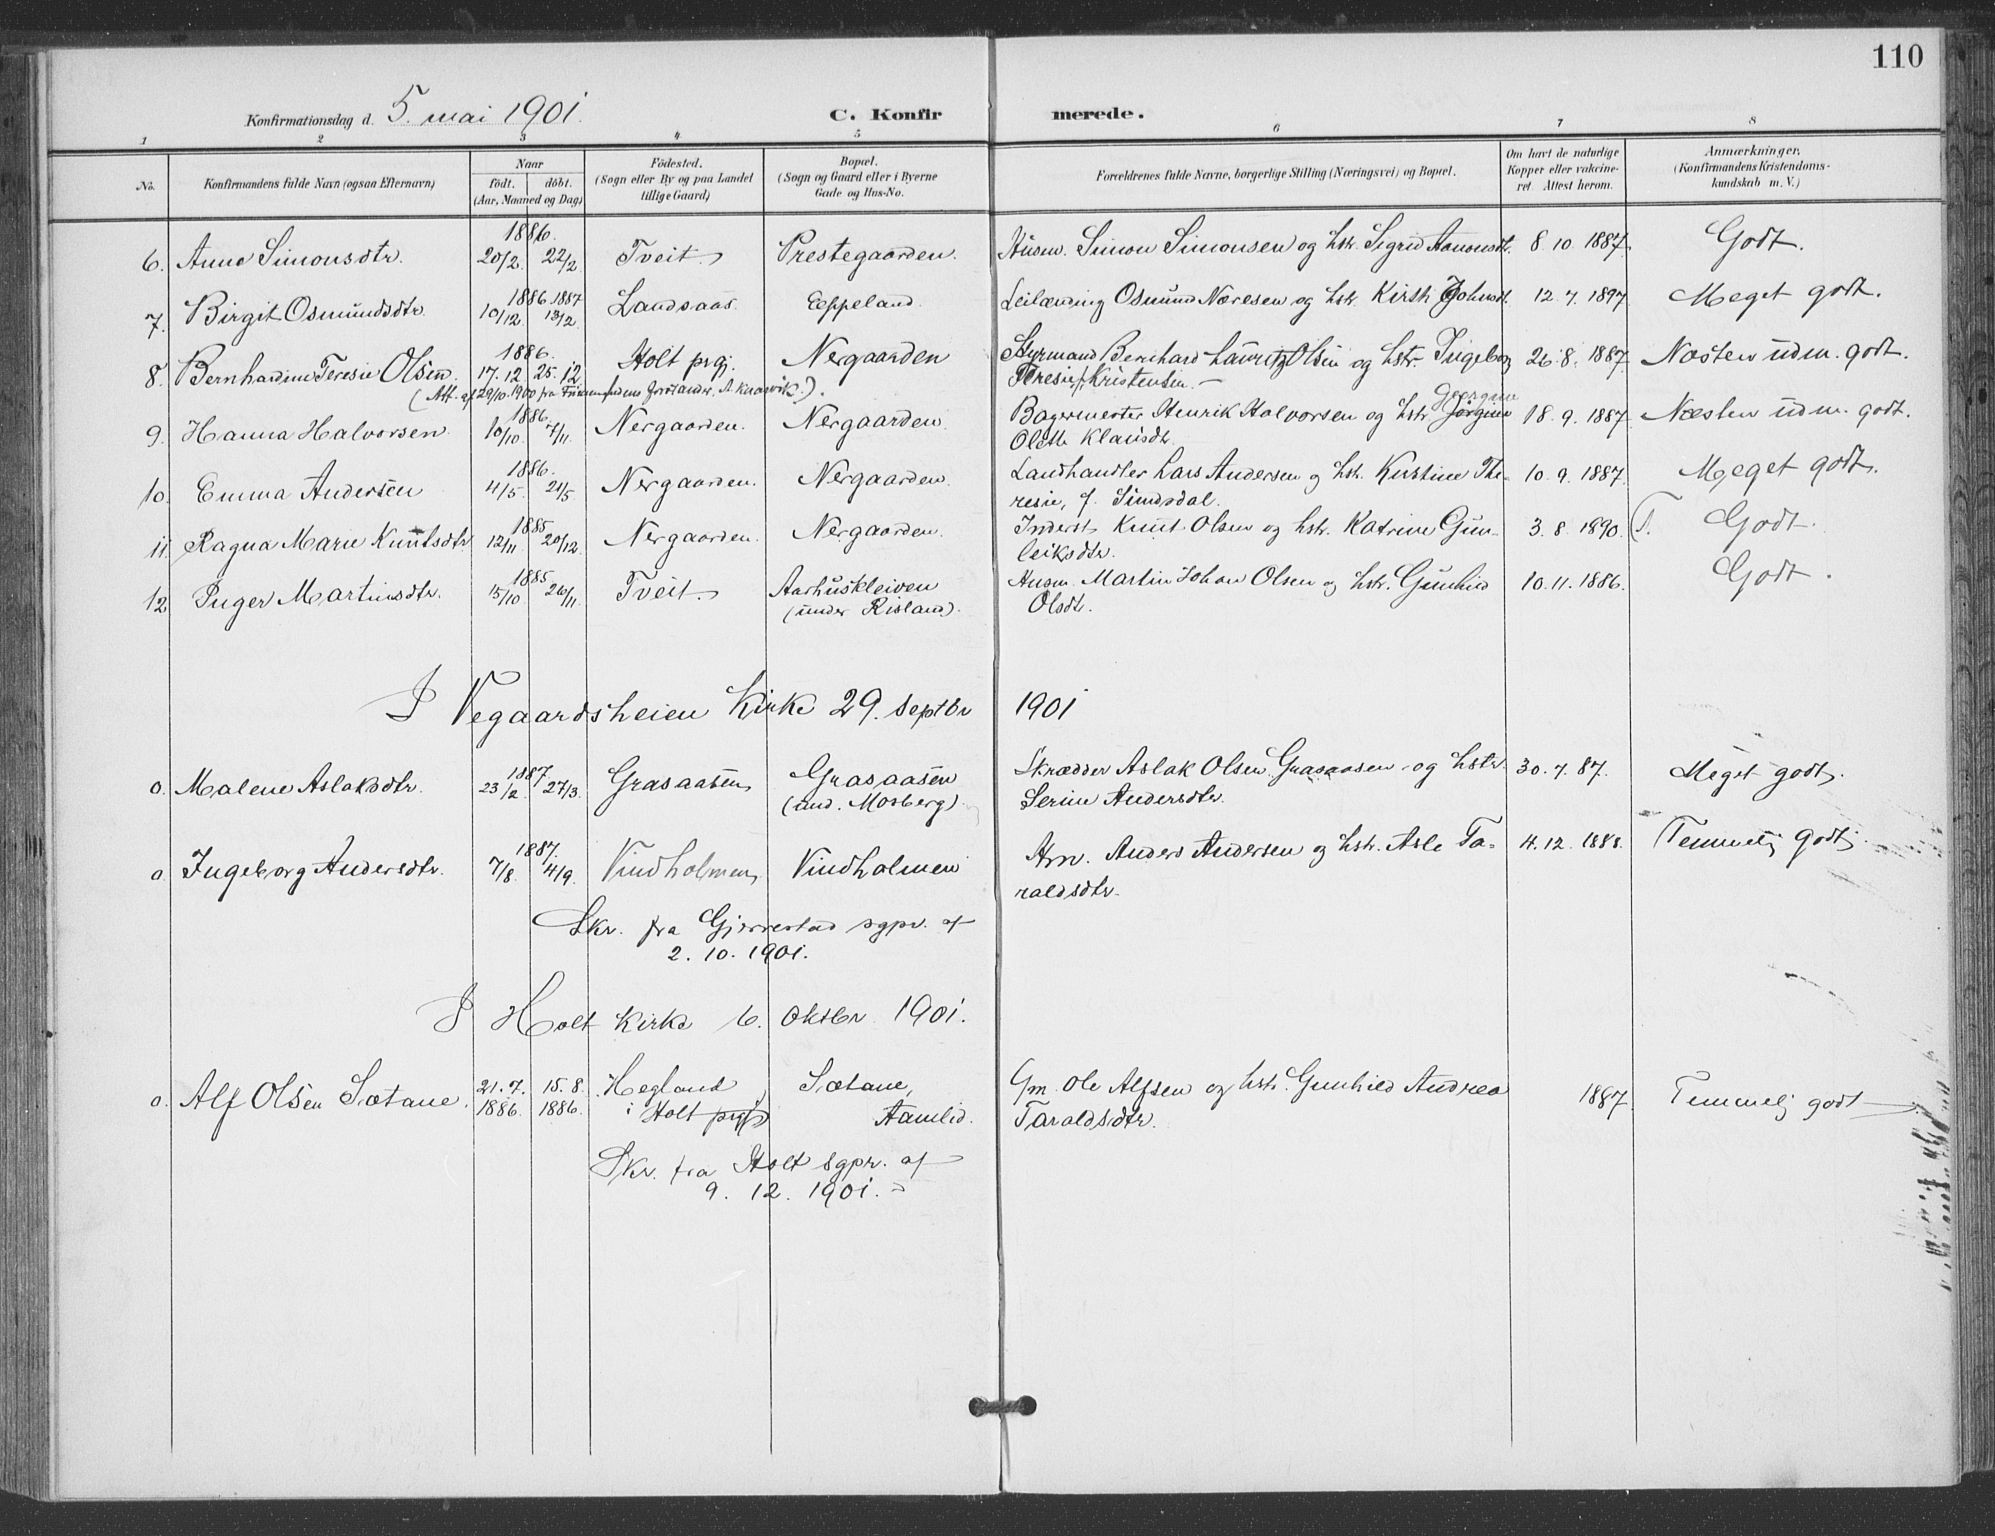 110
Konfirmationsdag d. 5. mai 1901.
C. Konfirmerede.
1 2 3 4 5 6 7 8
No. Konfirmandens fulde Navn (ogsaa Efternavn) Naar födt. döbt. (Aar, Maaned og Dag) Födested. (Sogn eller By og paa Landet tillige Gaard) Bopæl. (Sogn og Gaard eller i Byerne Gade og Hus-No. Forældrenes fulde Navne, borgerlige Stilling (Næringsvei) og Bopæl. Om havt de naturlige Kopper eller vakcineret Attest herom. Anmærkninger, (Konfirmandens Kristendomskundskab m. V.)
1886.
6. Anne Simonsdtr. 20/2. 22/2 Tveit. Prestegaarden. Husm. Simon Simonsen og hstr. Sigrid Aanonsdt. 8. 10. 1887. Godt.
1886 1887
7. Birgit Osmundsdtr. 10/12 13/2 Landsaas. Eppeland. Leilænding Osmund Næresen og hstr. Kirsti Johnsd. 12. 7. 1897 Meget godt.
1886.
8. Bernhardine Teresie Olsen. 17.12 25.12. Holt prgj. Nergaarden Styrmand Bernhard Lauritz Olsen og hstr. Ingeborg 26. 8. 1887. Næsten udm. godt.
Teresie, f. Kristensen. -
(Att. af 29/10. 1900 fra forstander A. Kaarvik.).
1886. Georgine
9. Hanna Halvorsen. 10/10. 7/11. Nergaarden. Nergaarden. Bagermester Henrik Halvorsen og hstr. Jørgine 18. 9. 1887 Næsten udm. godt.
Olette Klausdtr.
1886.
10. Emma Andersen 4/5. 21/5 Nergaarden. Nergaarden. Landhandler Lars Andersen og hstr. Kirstine The- 10. 9. 1887. Meget godt.
resie, f. Simesdal.
1885
11 Ragna Marie Knutsdtr. 12/11 20/12 Nergaarden. Nergaarden. Inderst Knut Olsen og hstr. Katrine Gun- 3. 8. 1890. Godt.
leiksdtr.
1885
12 Inger Martinsdtr. 15/10 26/11. Tveit. Aarhuskleiven Husm. Martin Johan Olsen og hstr. Gunhild 10. 11. 1886. Godt.
(under Risland). Olsdtr.
I Vegaardsheien Kirke 29. septbr 1901
1887
0. Malene Aslaksdtr. 23/2. 27/3. Grasaasen Grasaasen Skrædder Aslak Olsen Grasaasen og hstr. 30. 7. 87. Meget godt.
(und. Mosberg). Serine Andersdtr.
1887.
0. Ingeborg Andersdtr. 7/8. 4/9. Vindholmen Vindholmen Arm. Anders Andersen og hstr. Asle Ta- 4. 12. 1888. Temmelig godt.
raldsdtr.
Skr. fra Gjerrestad sgpr. af
2. 10. 1901.
I Holt Kirke 6. oktbr 1901.
0. Alf Olsen Sætane. 21. 7. 1886. 15. 8. 1886. Hegland i Holt prgj Sætane, Aamlid. Gm. Ole Alfsen og hstr. Gunhild Andrea 1887. Temmelig godt
Taraldsdtr.
Skr. fra Holt sgpr. af
9. 12. 1901.